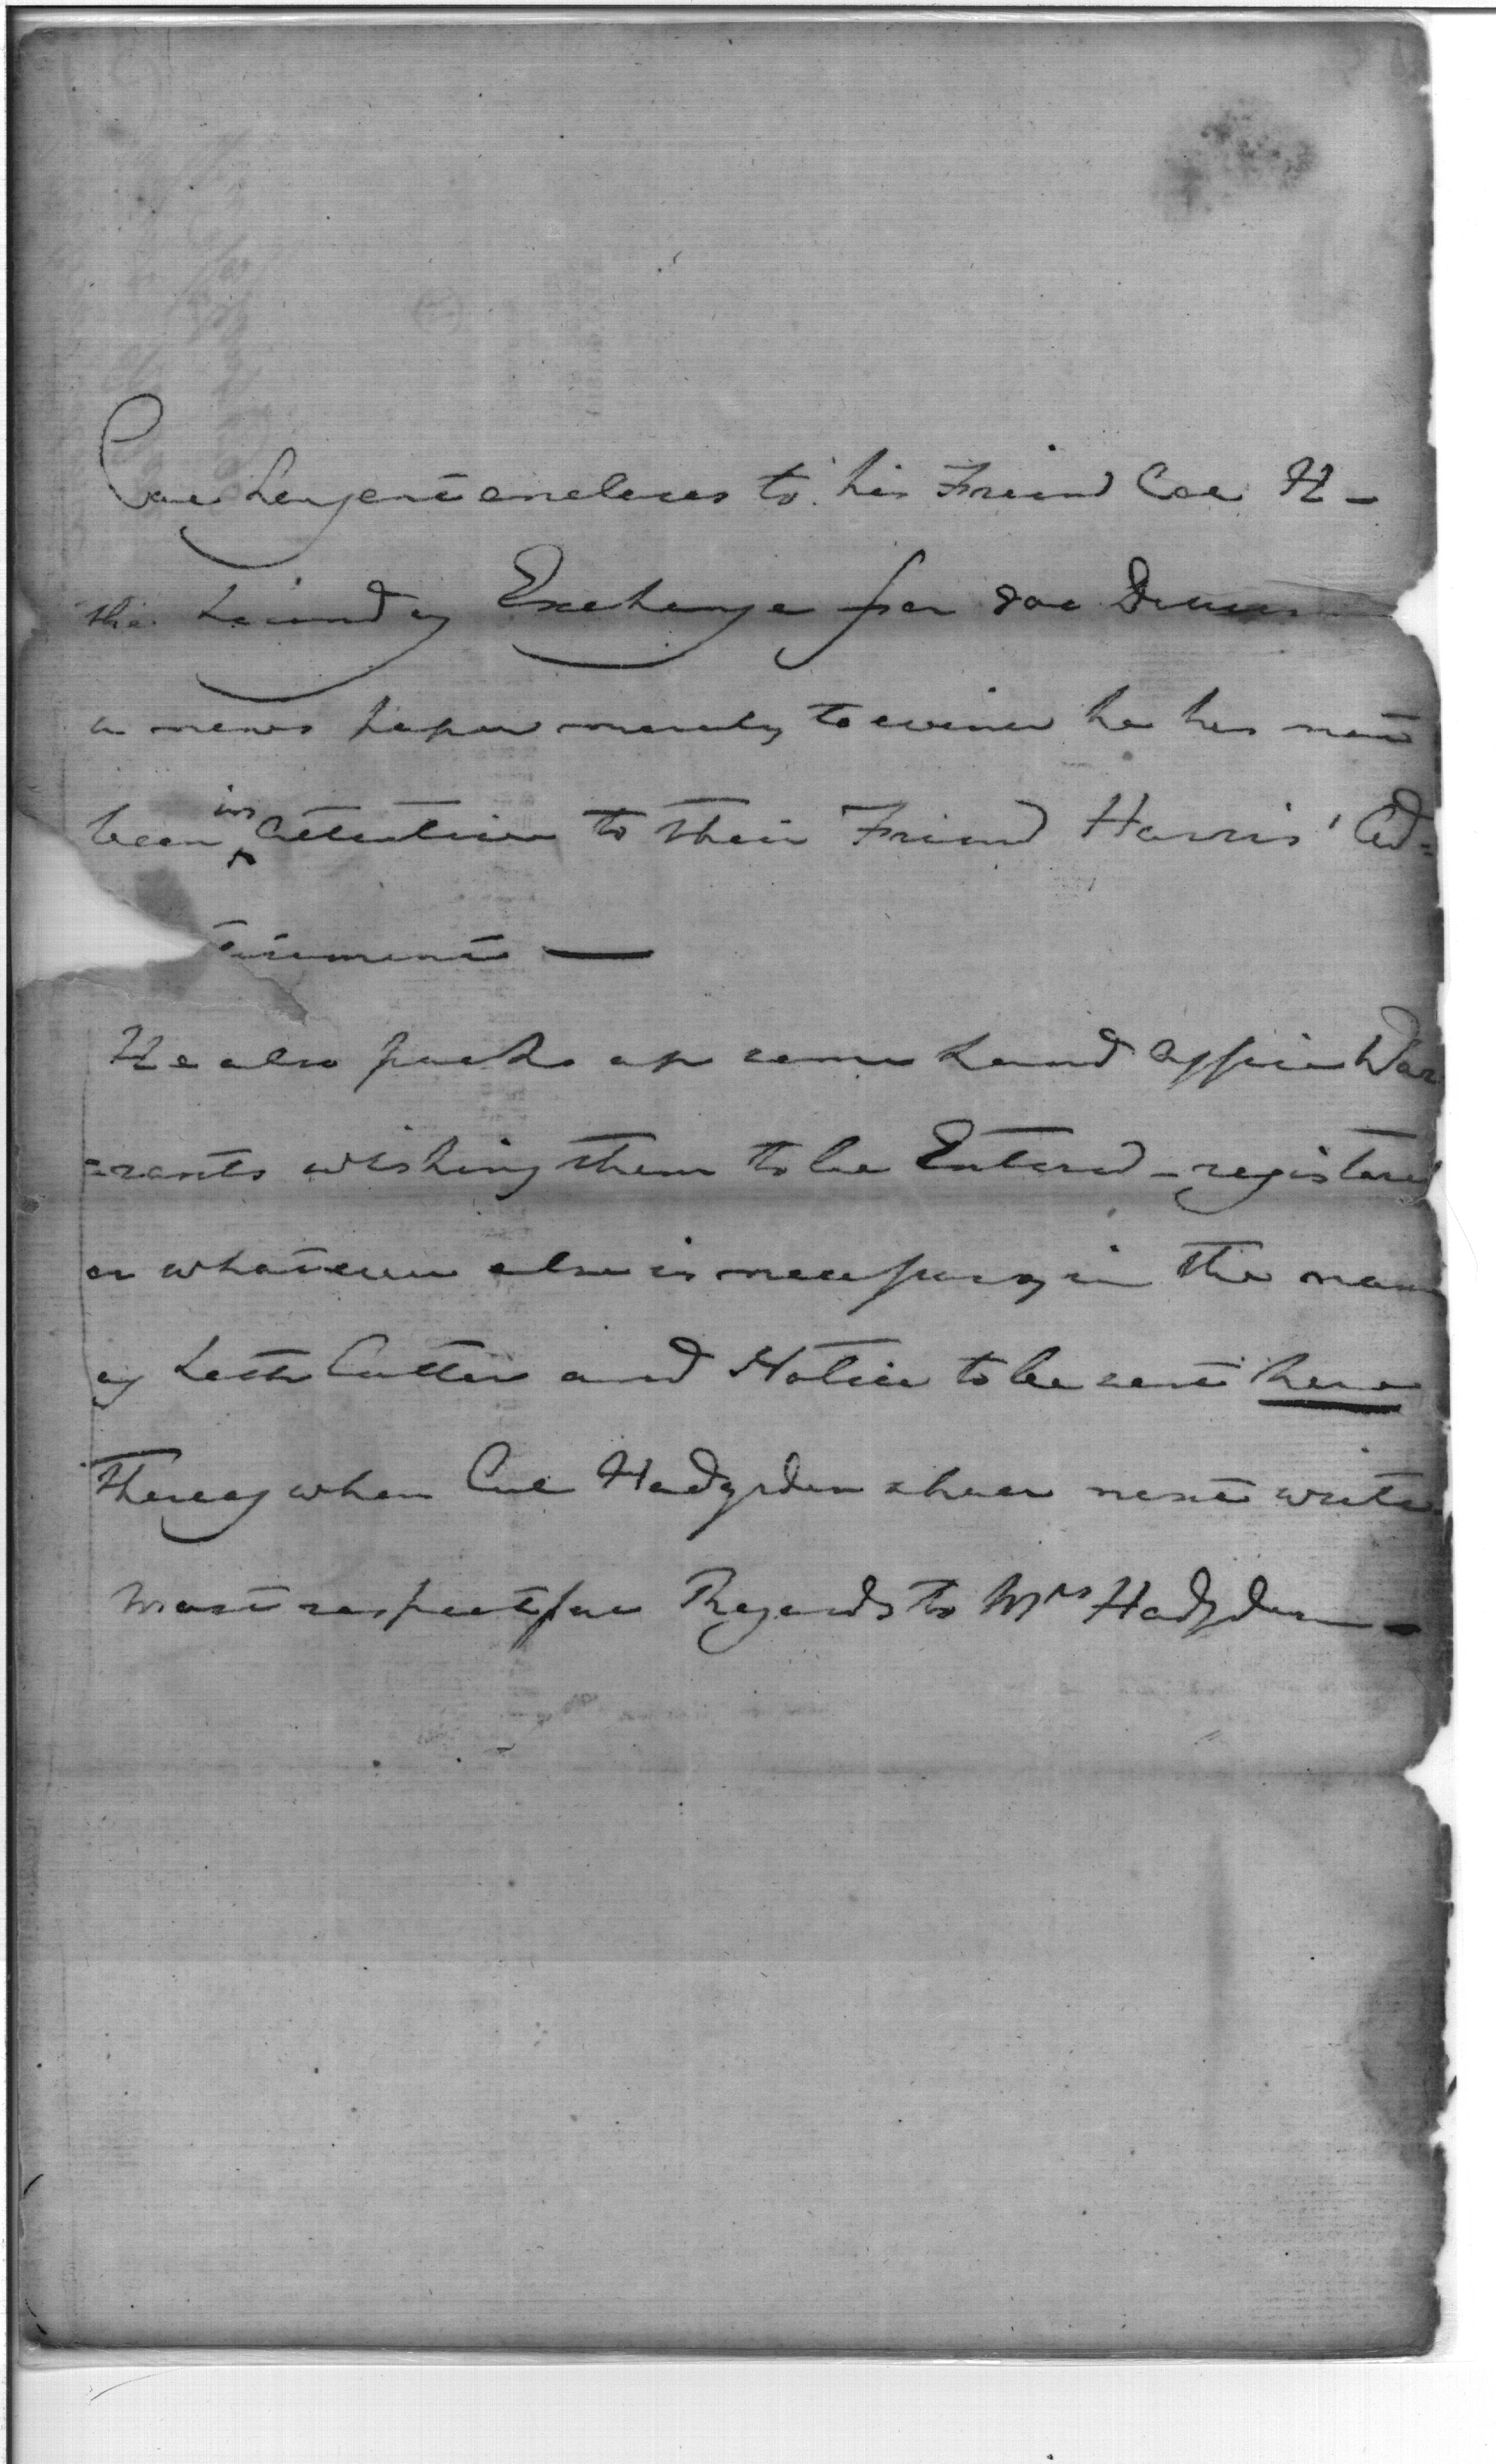 Col Sargent encloses to his Friend Col H –
the Second of Exchange for 800 Dollars
a news paper merely to evince he has not
been inattentive to their Friend Harris' Ad=
tisement —
He also packs up some Land Office War
=rants wishing them to be Entered – registered
or whatever else is necessary in the name
of Seth Cutter and Notice to be sent here
thereof when Col Hodgdon shall next write
Most respectful Regards to Mrs Hodgdon –